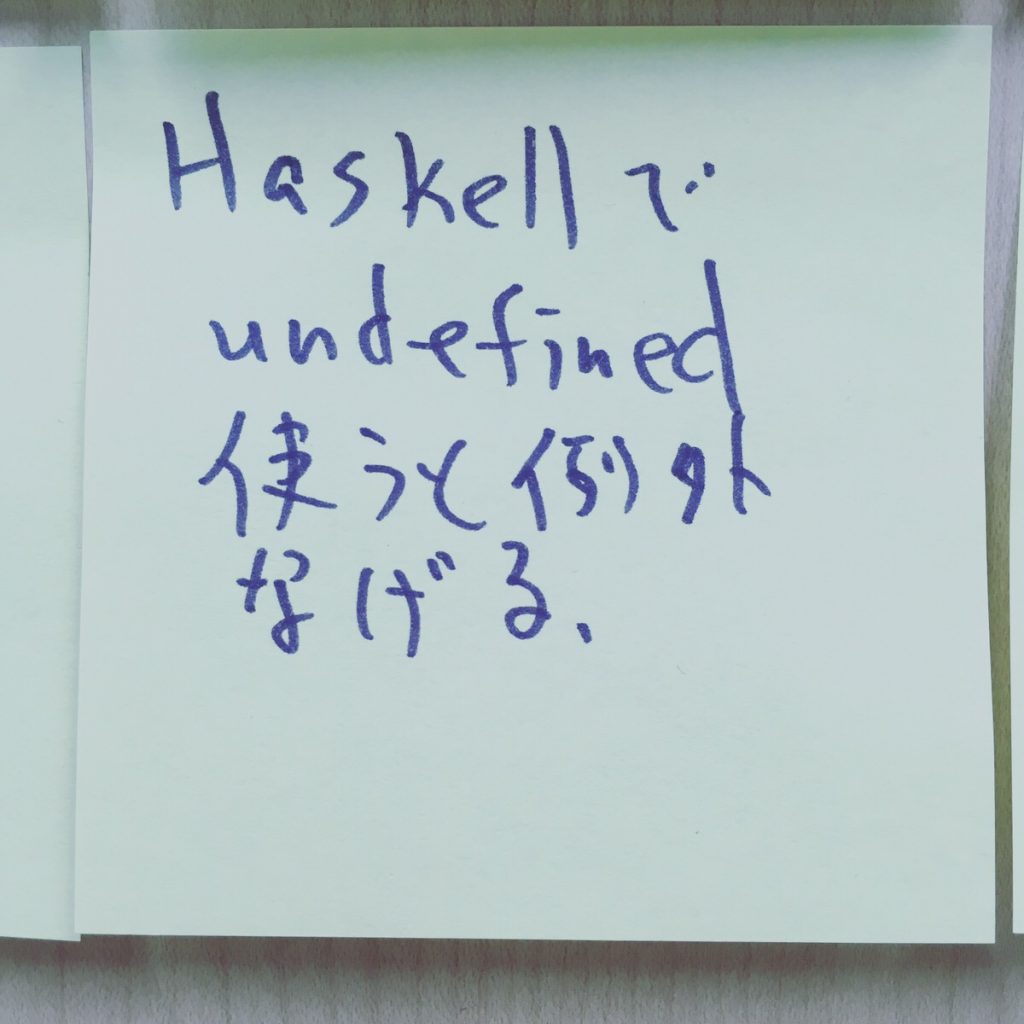 Haskellで
undefined
使うと例外
なげる.